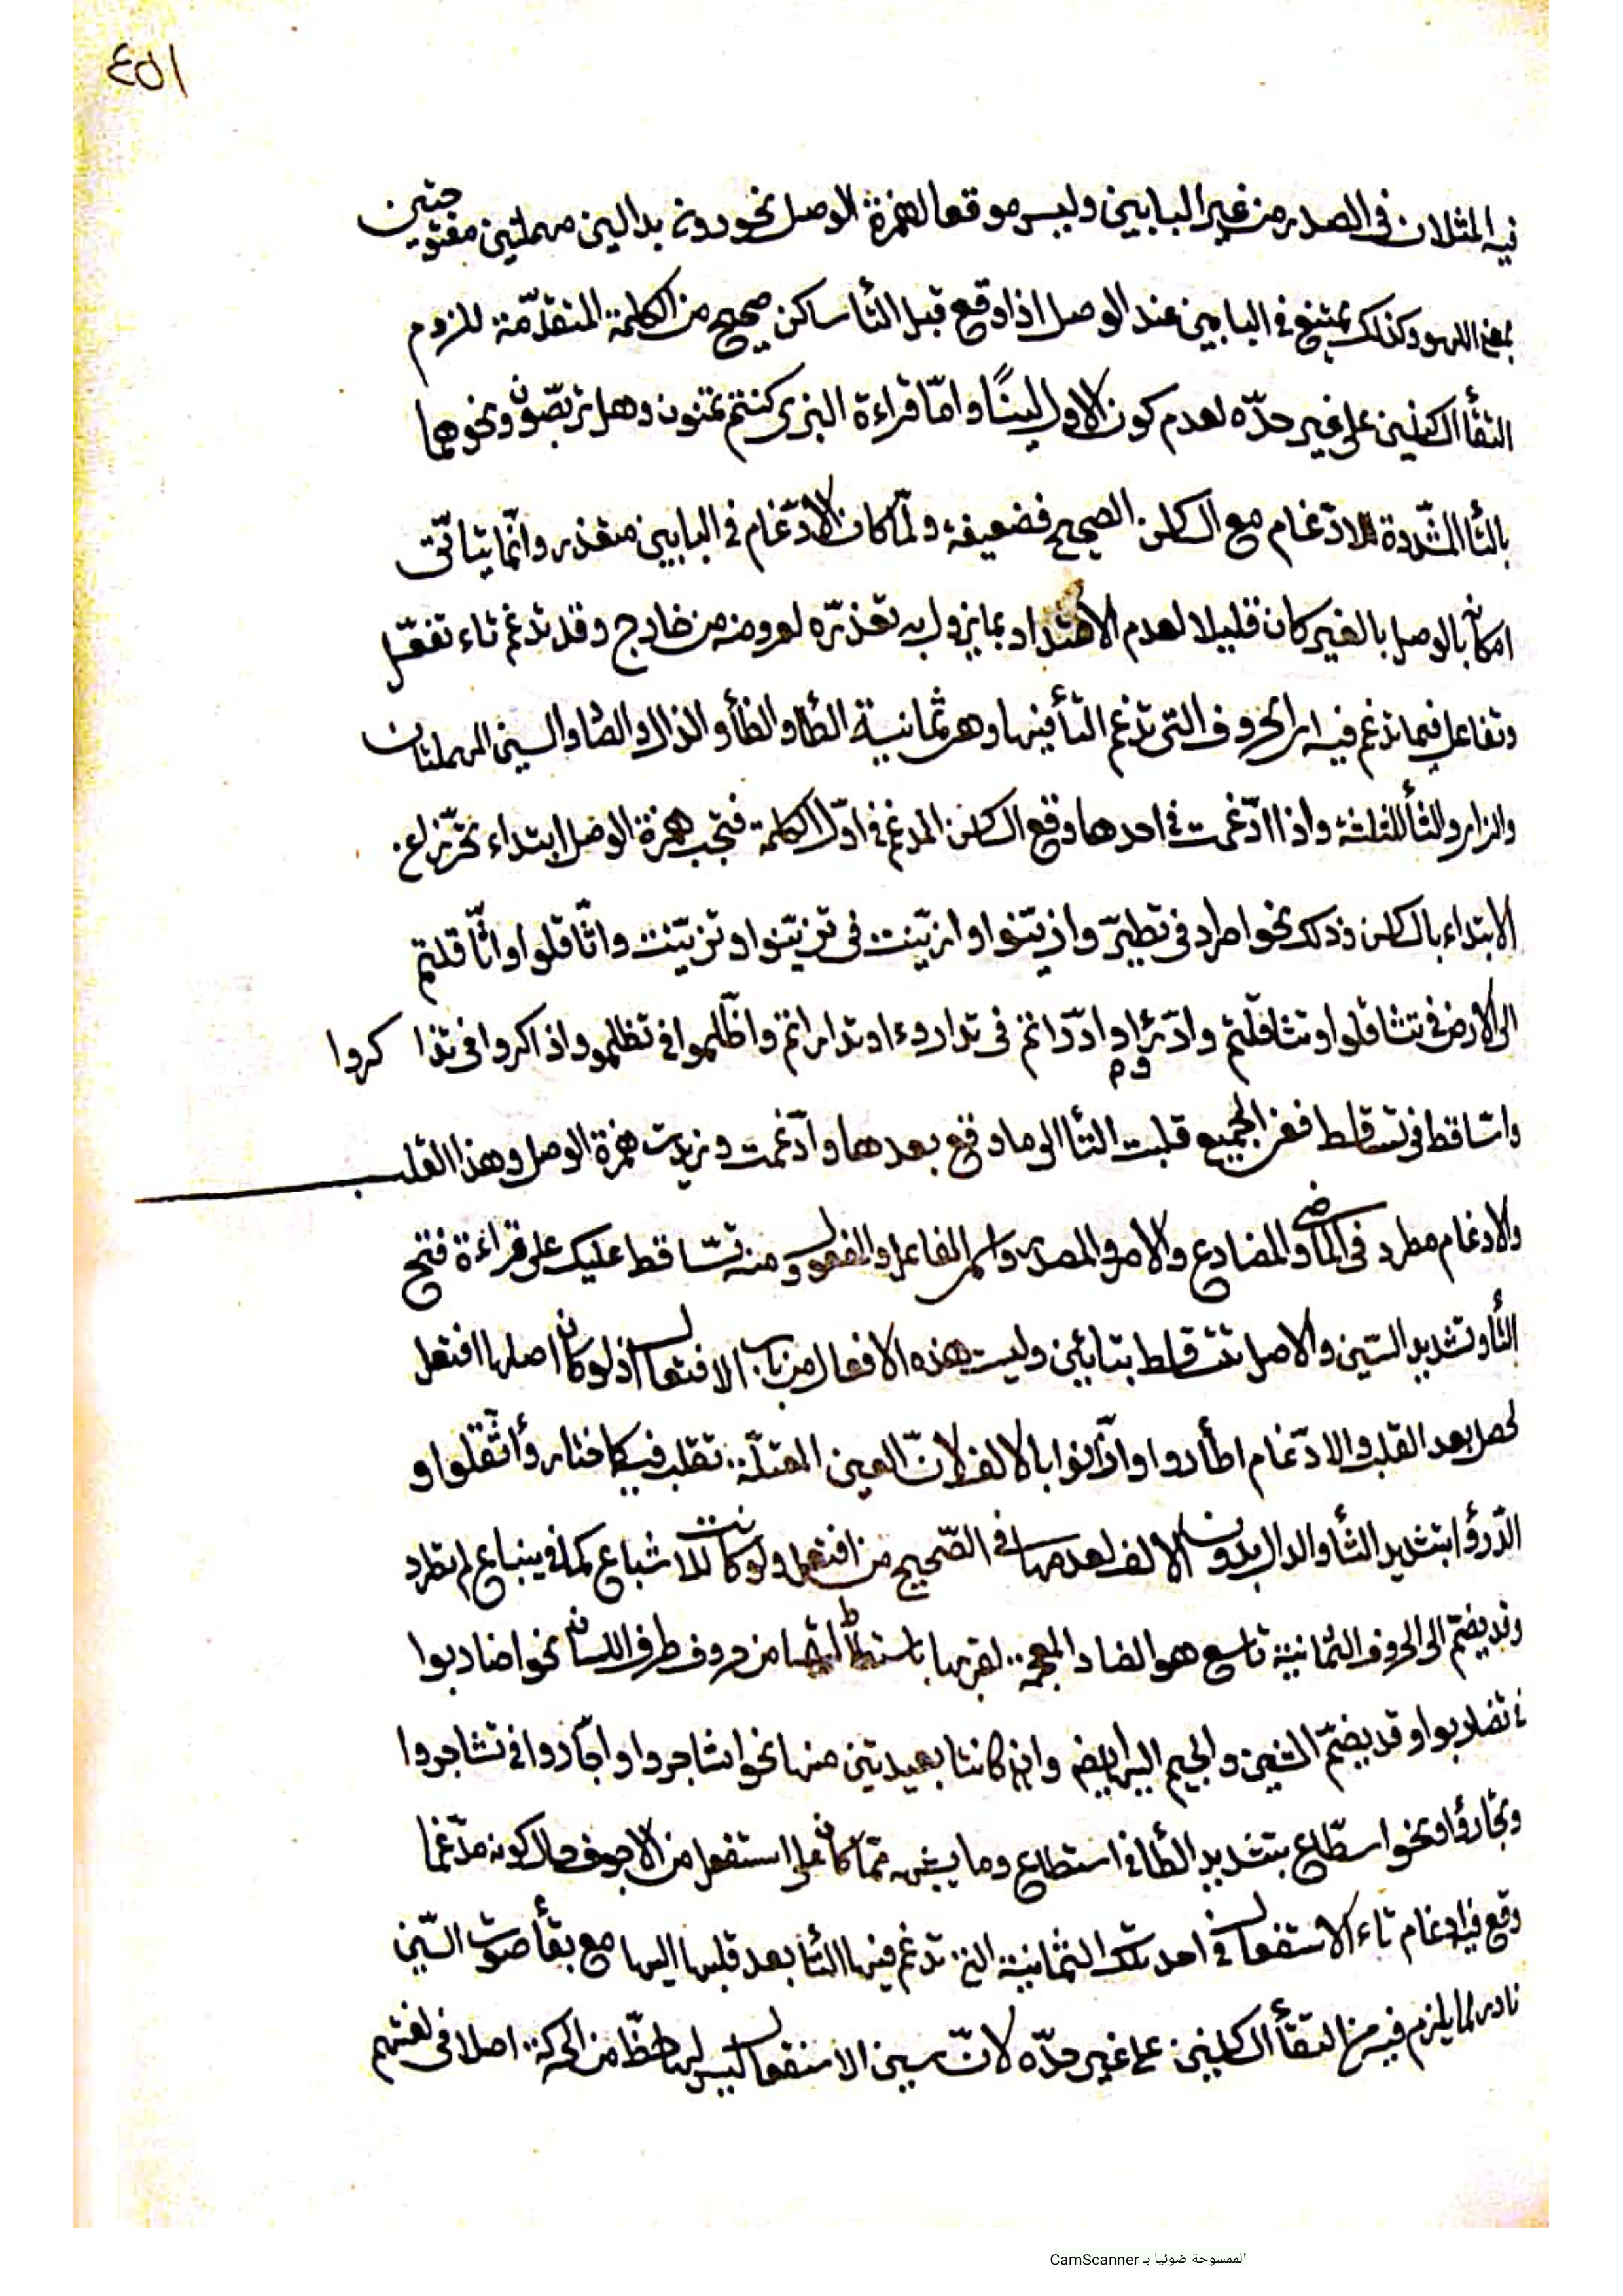 ٤٥١
فيه المثلان في الصدر من غير البابين وليس موقعا لهمزة الوصل نحو ددن بدالين مهملتين مفتوحتين
بمعنى اللهو وكذلك يمتنع في البابين عند الوصل اذا وقع قبل التأ ساكن صحيح من الكلمة المتقدّمة للزوم
التقأ الساكنين على غير حدّه لعدم كون الاول لينًا وامّا قراءة البزى كنتم تمنون وهل تربّصون ونحوهما
بالتأ المشدّدة للادّغام مع الساكن الصحيح فضعيفة ولمّا كان الادّغام في البابين متعذر وانّما يتأتّى
امكانه بالوصل بالغير كان قليلا لعدم الاعتداد بما يزول به تعذّره لعروضه من خارج وقد تدغم تاء تفعّل
وتفاعل فيما تدغم فيه اى الحروف التى تدغم التأ فيها وهى ثمانية الطأ والظأ والذال والصاد والسين المهملتان
والزاى والثأ المثلثة واذا ادّغمت في احدها وقع الساكن المدغم في اوّل الكلمة فتجب همزة الوصل ابتداء تحرّزا عن
الابتداء بالساكن وذلك نحو اطير في تطيّر وازيّنوا وازيّنت في تزيّنوا وتزيّنت واثّاقلوا واثّاقلتم
الى الارض في تثاقلوا وتثاقلتم وادّرؤا وادّراتم في تدارءوا وتداراتم واظّلموا في تظلموا واذاكروا في تذاكروا
واسّاقط في تساقط ففى الجميع قلبت التأ الى ما وقع بعدها وادّغمت وزيدت همزة الوصل وهذا القلب
والادغام مطرد في الماضى والمضارع والامر والمصدر واسمى الفاعل والمفعول ومنه تسّاقط عليك على قراءة فتح
التأ وتشديد السّين والاصل تتساقط بتائين وليست هذه الافعال من باب الافتعال اذ لو كان اصلها افتعل
لحصل بعد القلب والادّغام اطأدوا وازّانوا بالالف لانّ العين المعتلّة تقلب فيه كاختار وأثّقلوا و
ادّرؤا بتشديد الثأ والدال بدون الالف لعدمها في الصّحيح من افتعل ولو كانت للاشباع كما في ينباع لم تطرد
وقد يضمّ الى الحروف الثمانية تاسع هو الضاد المعجمة لقربها باستطالتها من حروف طرف اللسان نحو اضاربوا
في تضاربوا وقد يضمّ الشين والجيم اليها ايضا وان كانتا بعيدتين منها نحو اشاجروا واجّأروا في تشاجروا
وتجارؤا ونحو اسطّاع بتشديد الطأ في استطاع وما يشبهه ممّا كان على استفعل من الاجوف حال كونه مدّغما
وقع فيه ادغام تاء الاستفعال في احد تلك الثمانية التى تدغم فيها التأ بعد قلبها اليها مع بقأ صوت السّين
نادر لما يلزم فيه من التقأ الساكنين على غير حدّه لانّ سين الاستفعال ليس لها حظّ من الحركة اصلا في لغتهم
الممسوحة ضوئيا بـ CamScanner